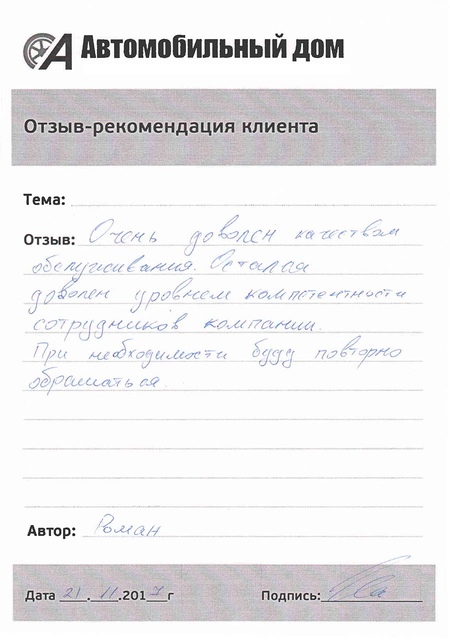 Автомобильный дом
Отзыв-рекомендация клиента
Тема:
Отзыв: Очень доволен качеством
обслуживания. Остался
доволен уровнем компетентности
сотрудников компании.
При необходимости буду повторно
обращаться.
Автор: Роман
Дата 21.11.2017г Подпись: